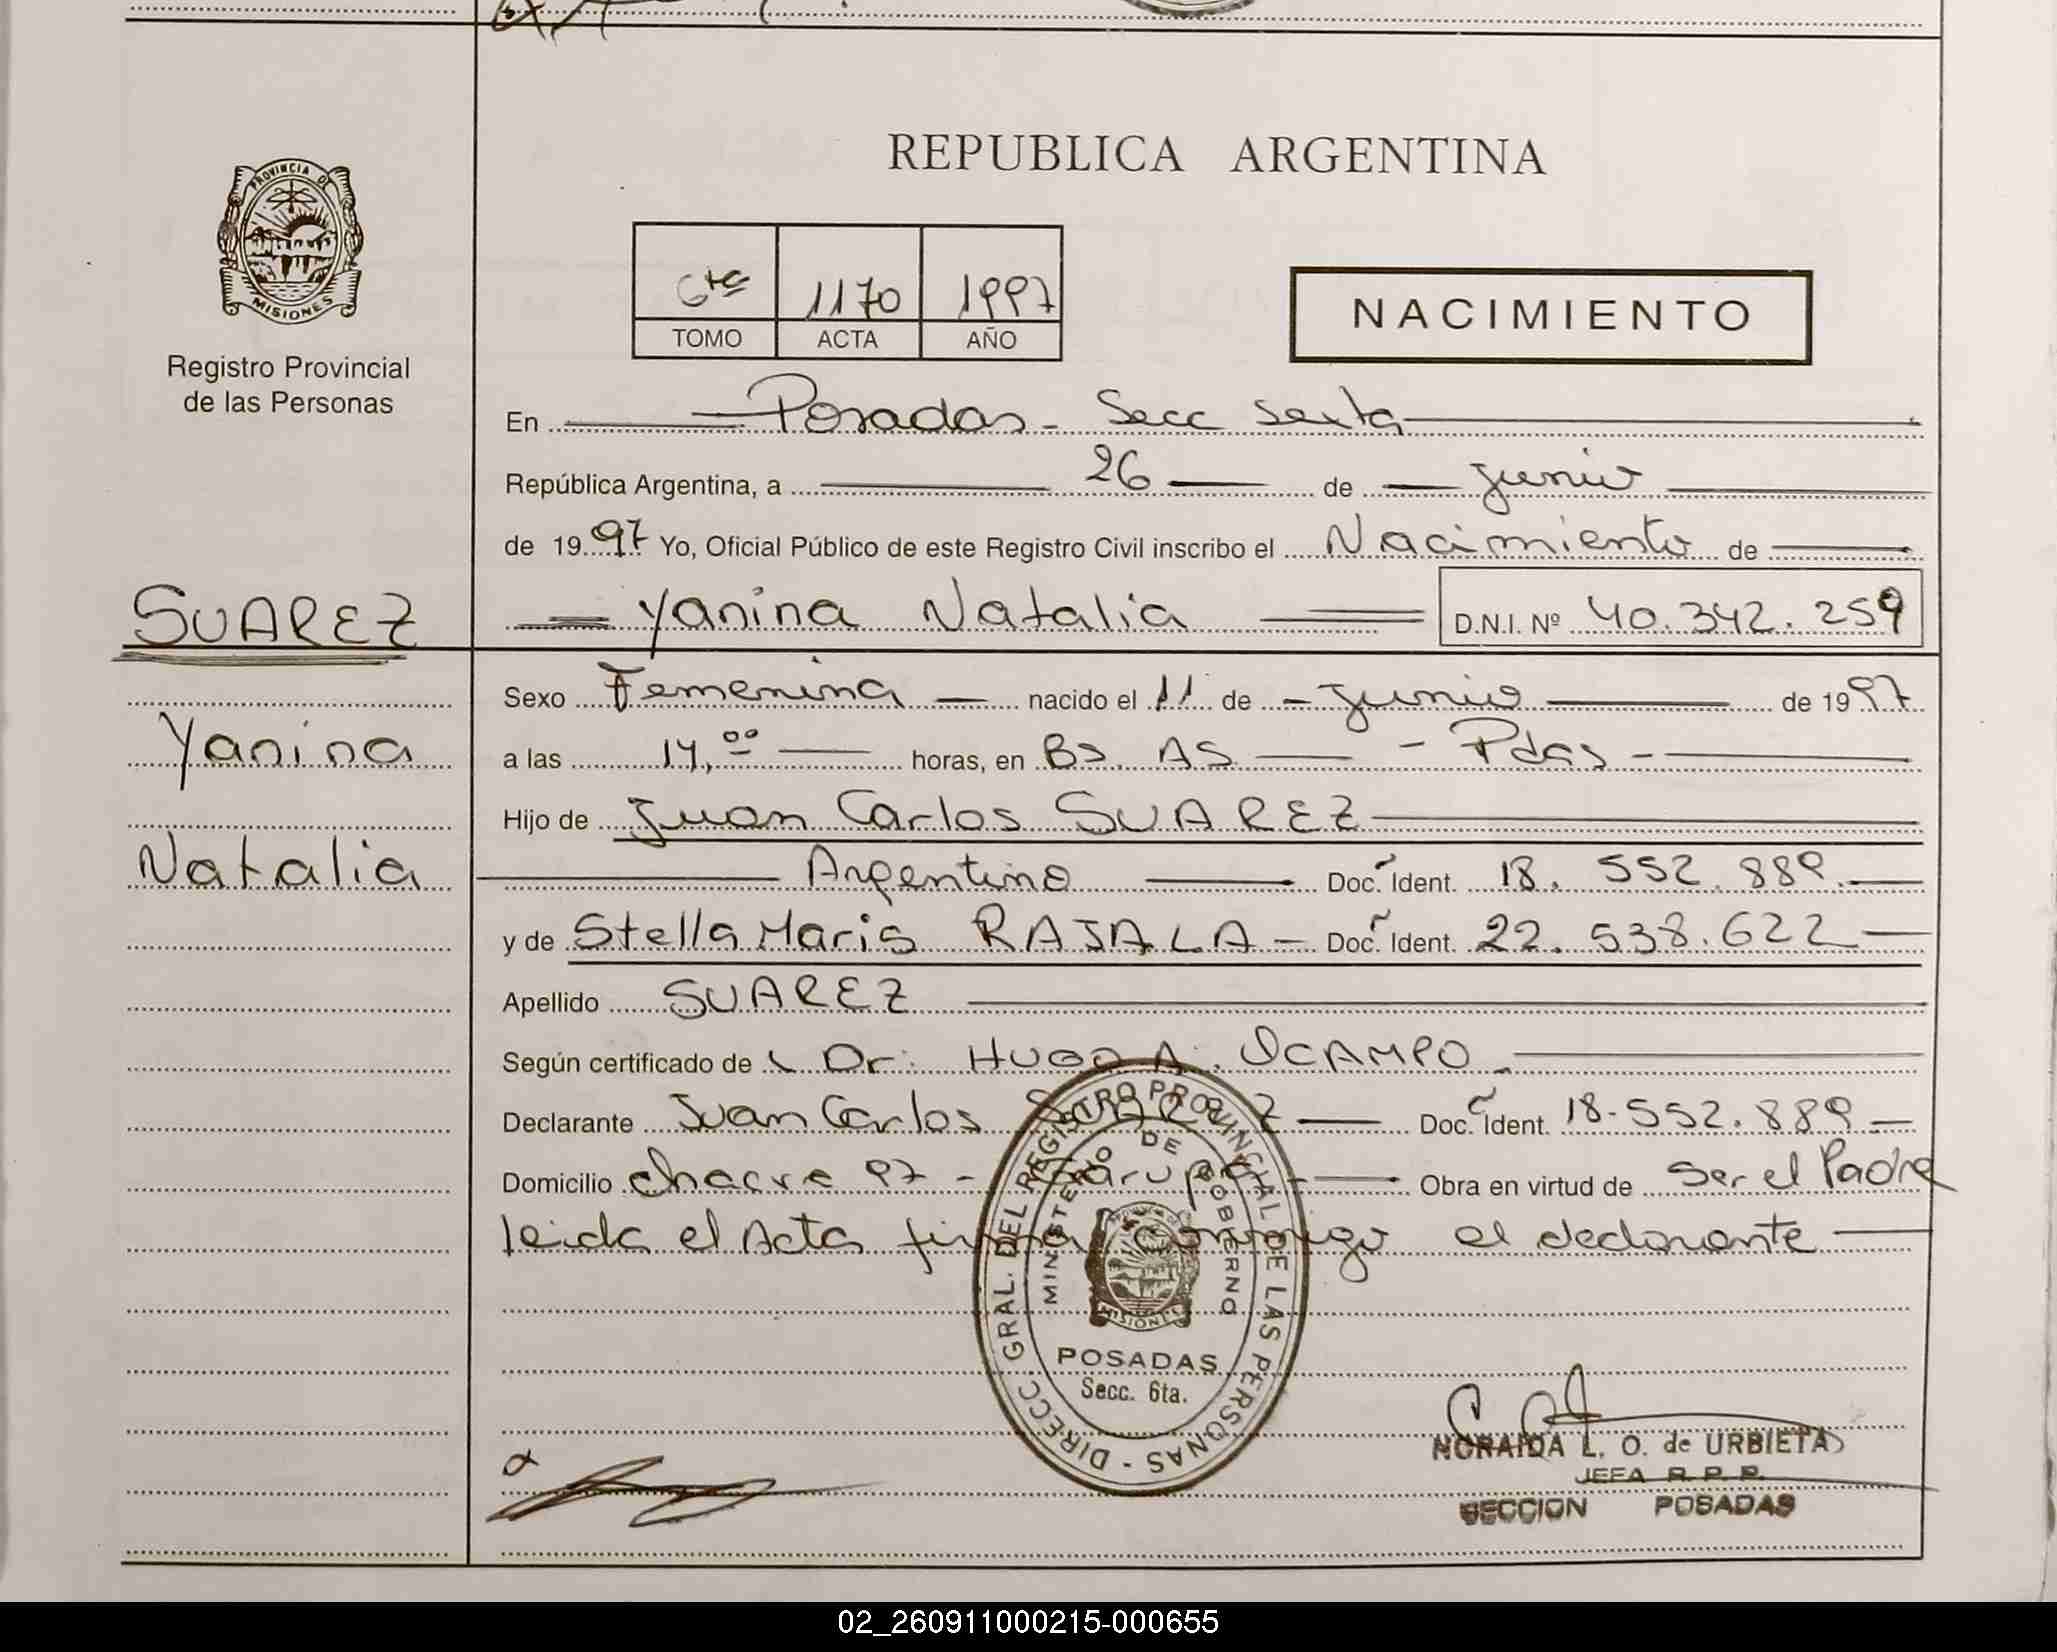 REPUBLICA ARGENTINA
PROVINCIA DE
MISIONES
Registro Provincial
de las Personas
6ta 1170 1997
TOMO ACTA AÑO
NACIMIENTO
En Posadas - Secc Sexta
República Argentina, a 26 de Junio
de 1997 Yo, Oficial Público de este Registro Civil inscribo el Nacimiento de
Yanina Natalia D.N.I. Nº 40.342.259
SUAREZ
Sexo Femenina nacido el 11 de Junio de 1997
Yanina
a las 14,00 horas, en Bs. AS - Pdas -
Hijo de Juan Carlos SUAREZ
Natalia
Argentino Doc. Ident. 18.552.889
y de Stella Maris RAJALA - Doc. Ident. 22.538.622
Apellido SUAREZ
Según certificado de Dr: HUGO A. OCAMPO
Declarante Juan Carlos SUAREZ Doc. Ident. 18-552.889
Domicilio chacra 97 - Garupá - Obra en virtud de Ser el Padre
leida el Acta firma conmigo el declarante
DIRECC. GRAL. DEL REGISTRO PROVINCIAL DE LAS PERSONAS -
MINISTERIO DE GOBIERNO
MISIONES
POSADAS
Secc. 6ta.
NORAIDA L. O. de URBIETA
JEFA R. P. P.
SECCION POSADAS
02_260911000215-000655